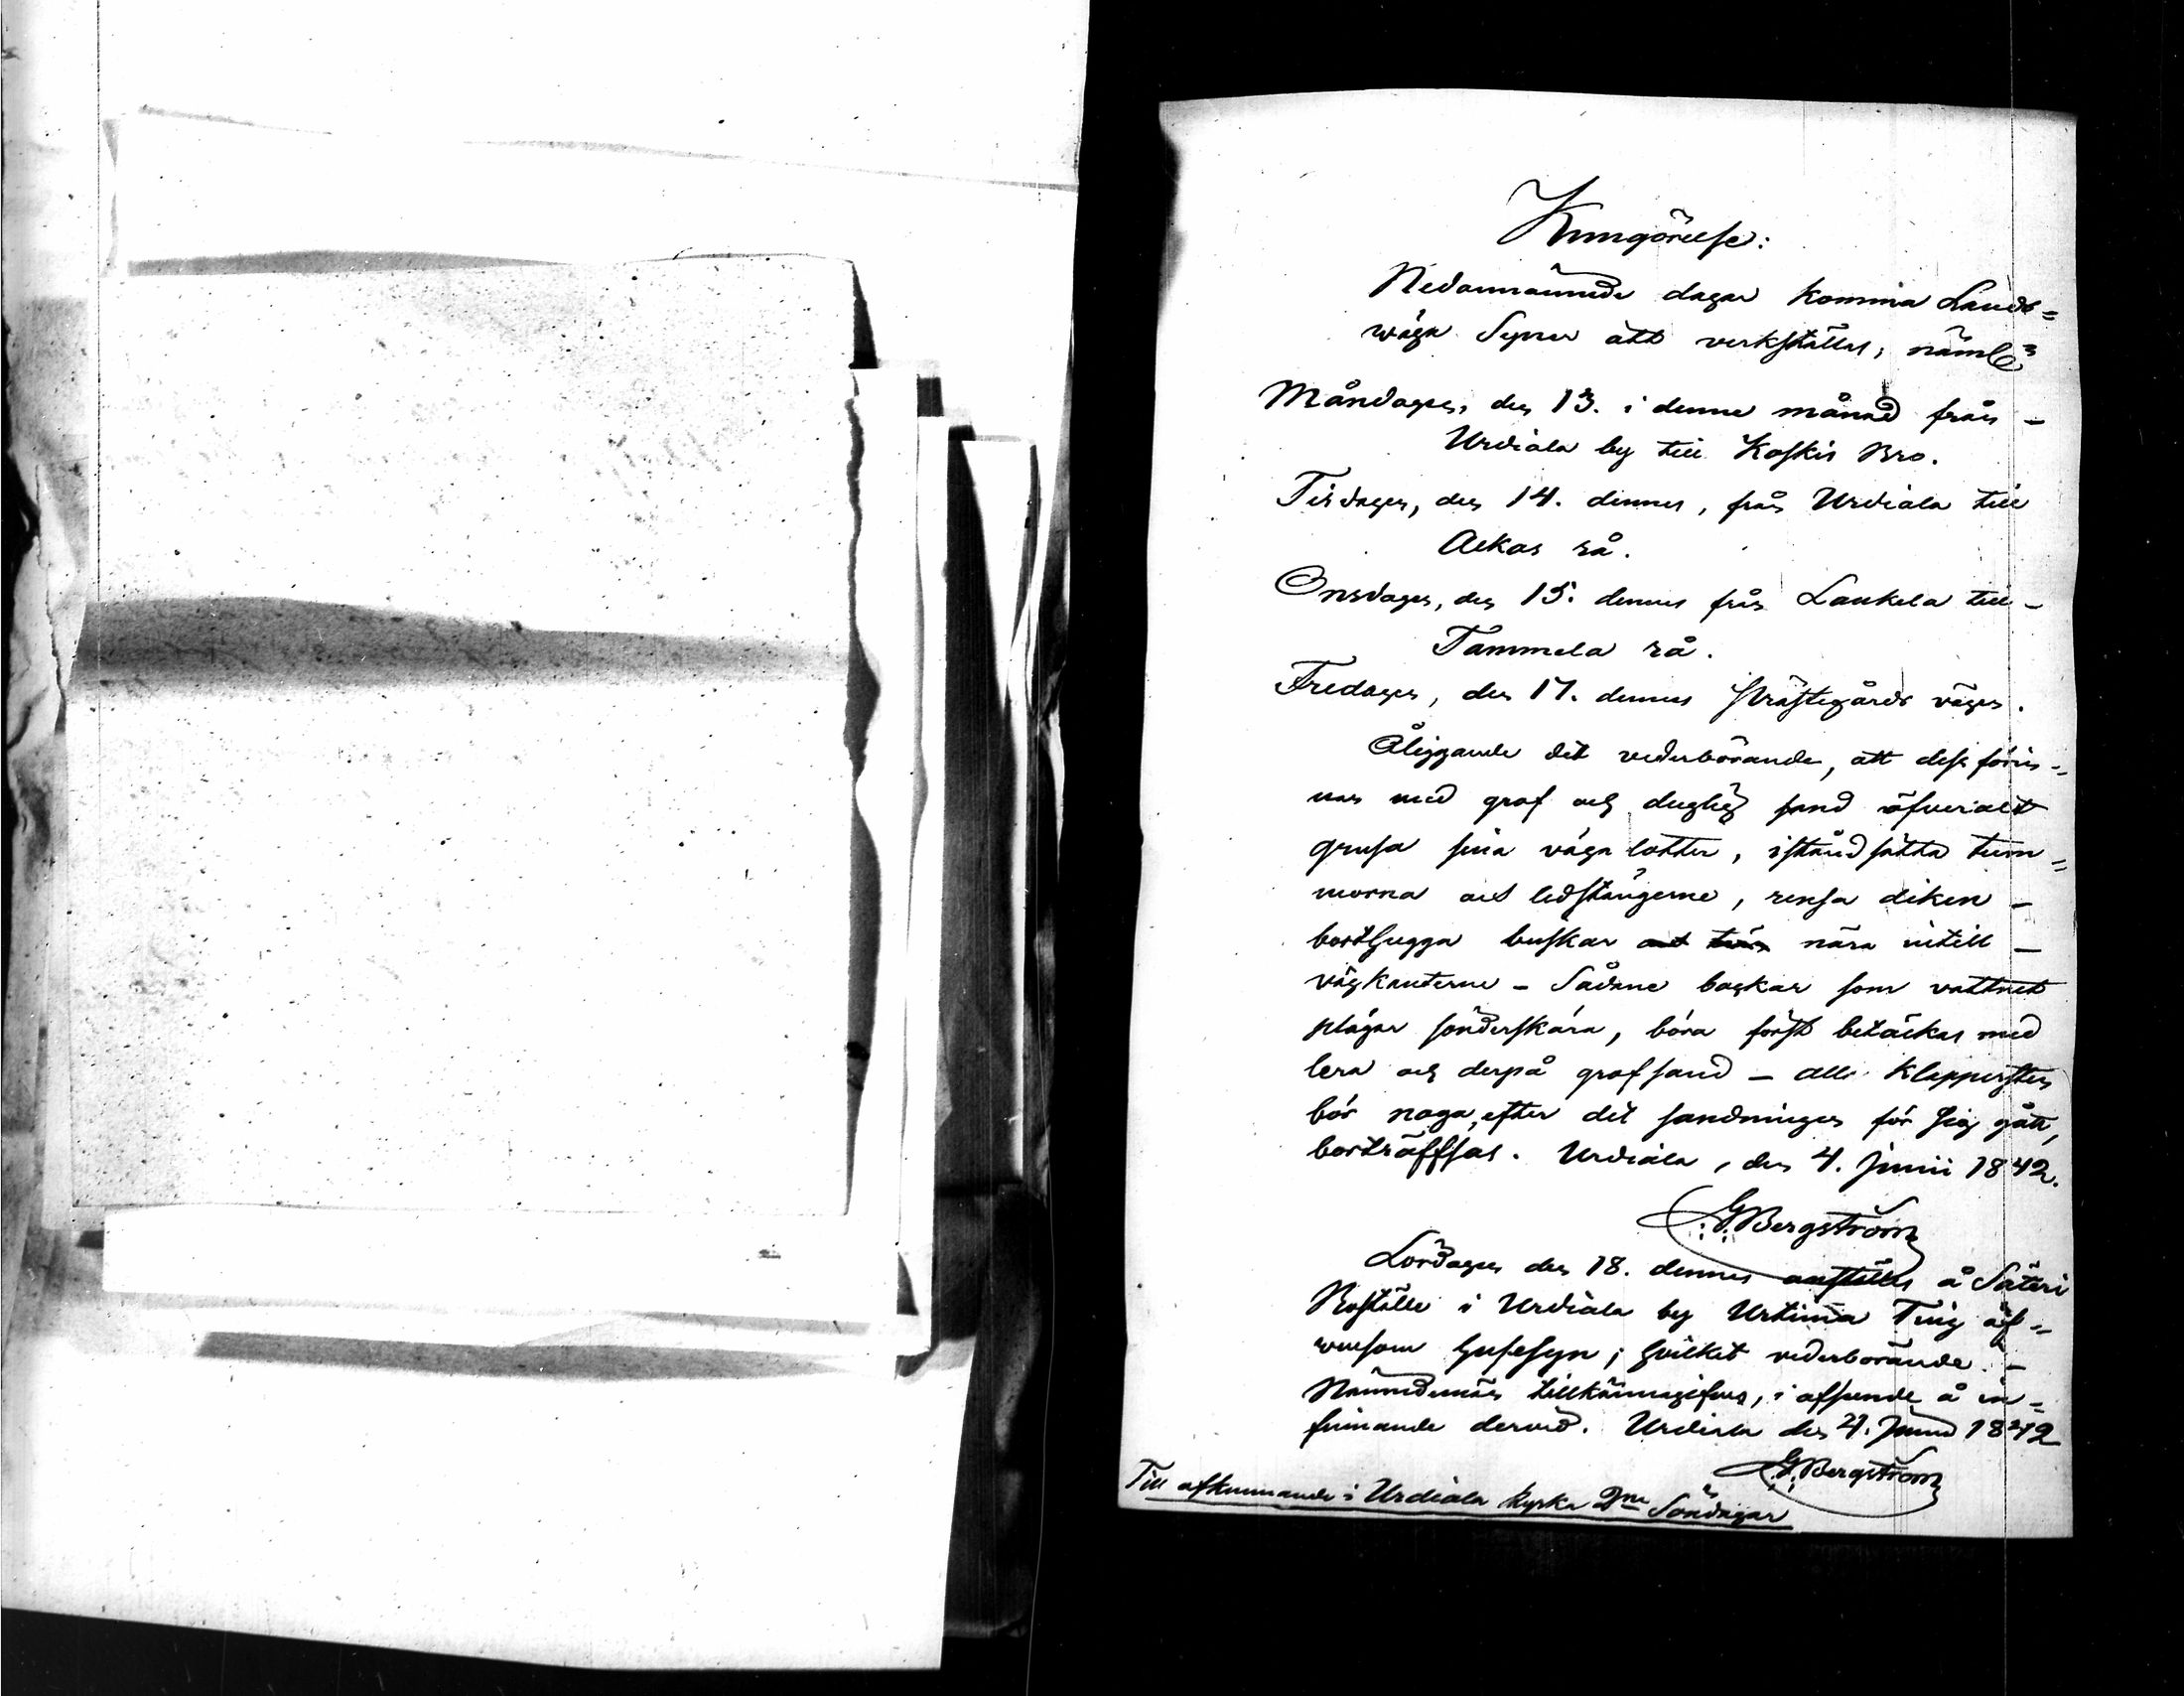 Kungörelse:
Nedannämnde dagar komma Lands=
wäga Syner att verkställas, näml:
Måndagen, den 13. i denne månad från –
Urdiala by till Koskis Bro.
Tisdagen, den 14. dennes, från Urdiala till
Ackas rå.
Onsdagen, den 15. dennes från Laukela till –
Tammela rå.
Fredagen, den 17. dennes Prästegårds vägen.
Åliggande det vederbörande, att dess förin=
nan med grof och duglig sand öfverallt
grusa sina väga lotter, iståndsätta trum=
morna och ledstängerne, rensa diken –
borthugga buskar nära intill –
vägkanterne – Sådane backar som vattnet
plägar sönderskära, böra först betäckas med
lera och derpå grof sand – all klappersten
bör noga, efter det sandningen för sig gått,
bortraffsas. Urdiala, den 4. Junii 1842.
G. Bergström
Lördagen den 18. dennes anställes å Säteri
Boställe i Urdiala by Urtima Ting äf=
wensom husesyn; hvilket vederbörande –
Nämndemän tillkännagifves, i afseende å in=
finnande dervid. Urdiala den 4. Junii 1842
G. Bergström
Till afkunnande i Urdiala kyrka 2ne Söndagar